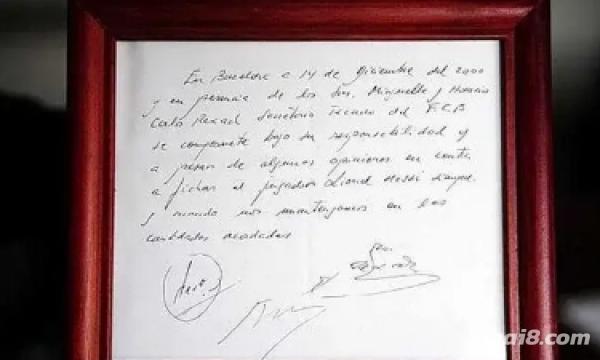 En Barcelona a 14 de Diciembre del 2000
y en presencia de los Srs. Minguella y Horacio
Carlos Rexach Secretario Tecnico del F.C.B
se compromete bajo su responsabilidad y
a pesar de algunas opiniones en contra
a fichar al jugador Lionel Messi siempre
y cuando nos mantengamos en las
cantidades acordadas
ai8.com